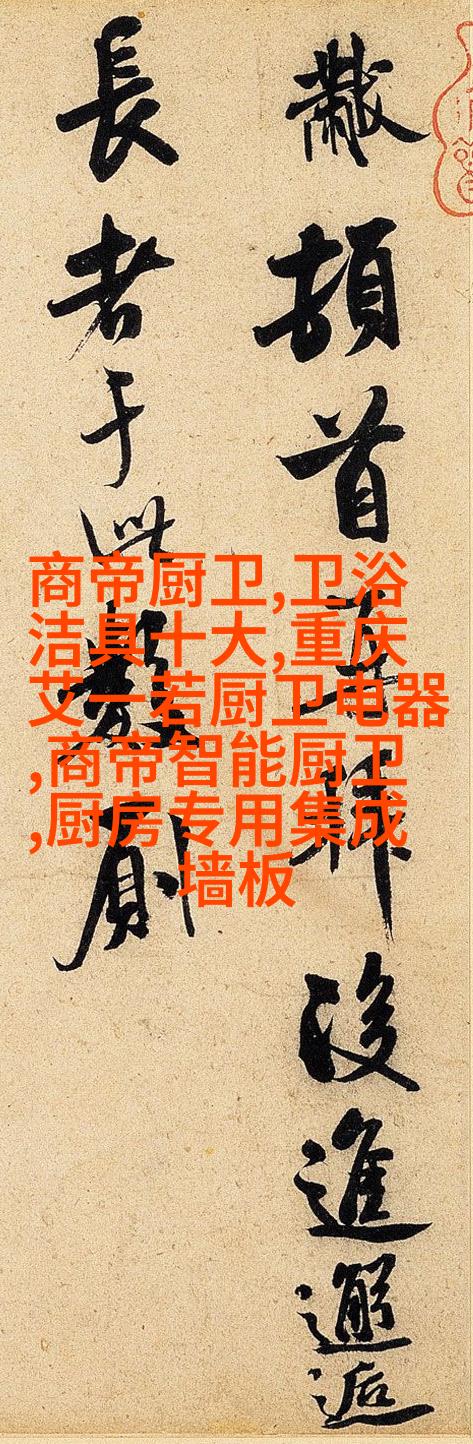 黻頓首再拜後進邂逅
長者于此數厠
商帝厨卫,卫浴
洁具十大,重庆
艾一若厨卫电器
,商帝智能厨卫
,厨房专用集成
墙板